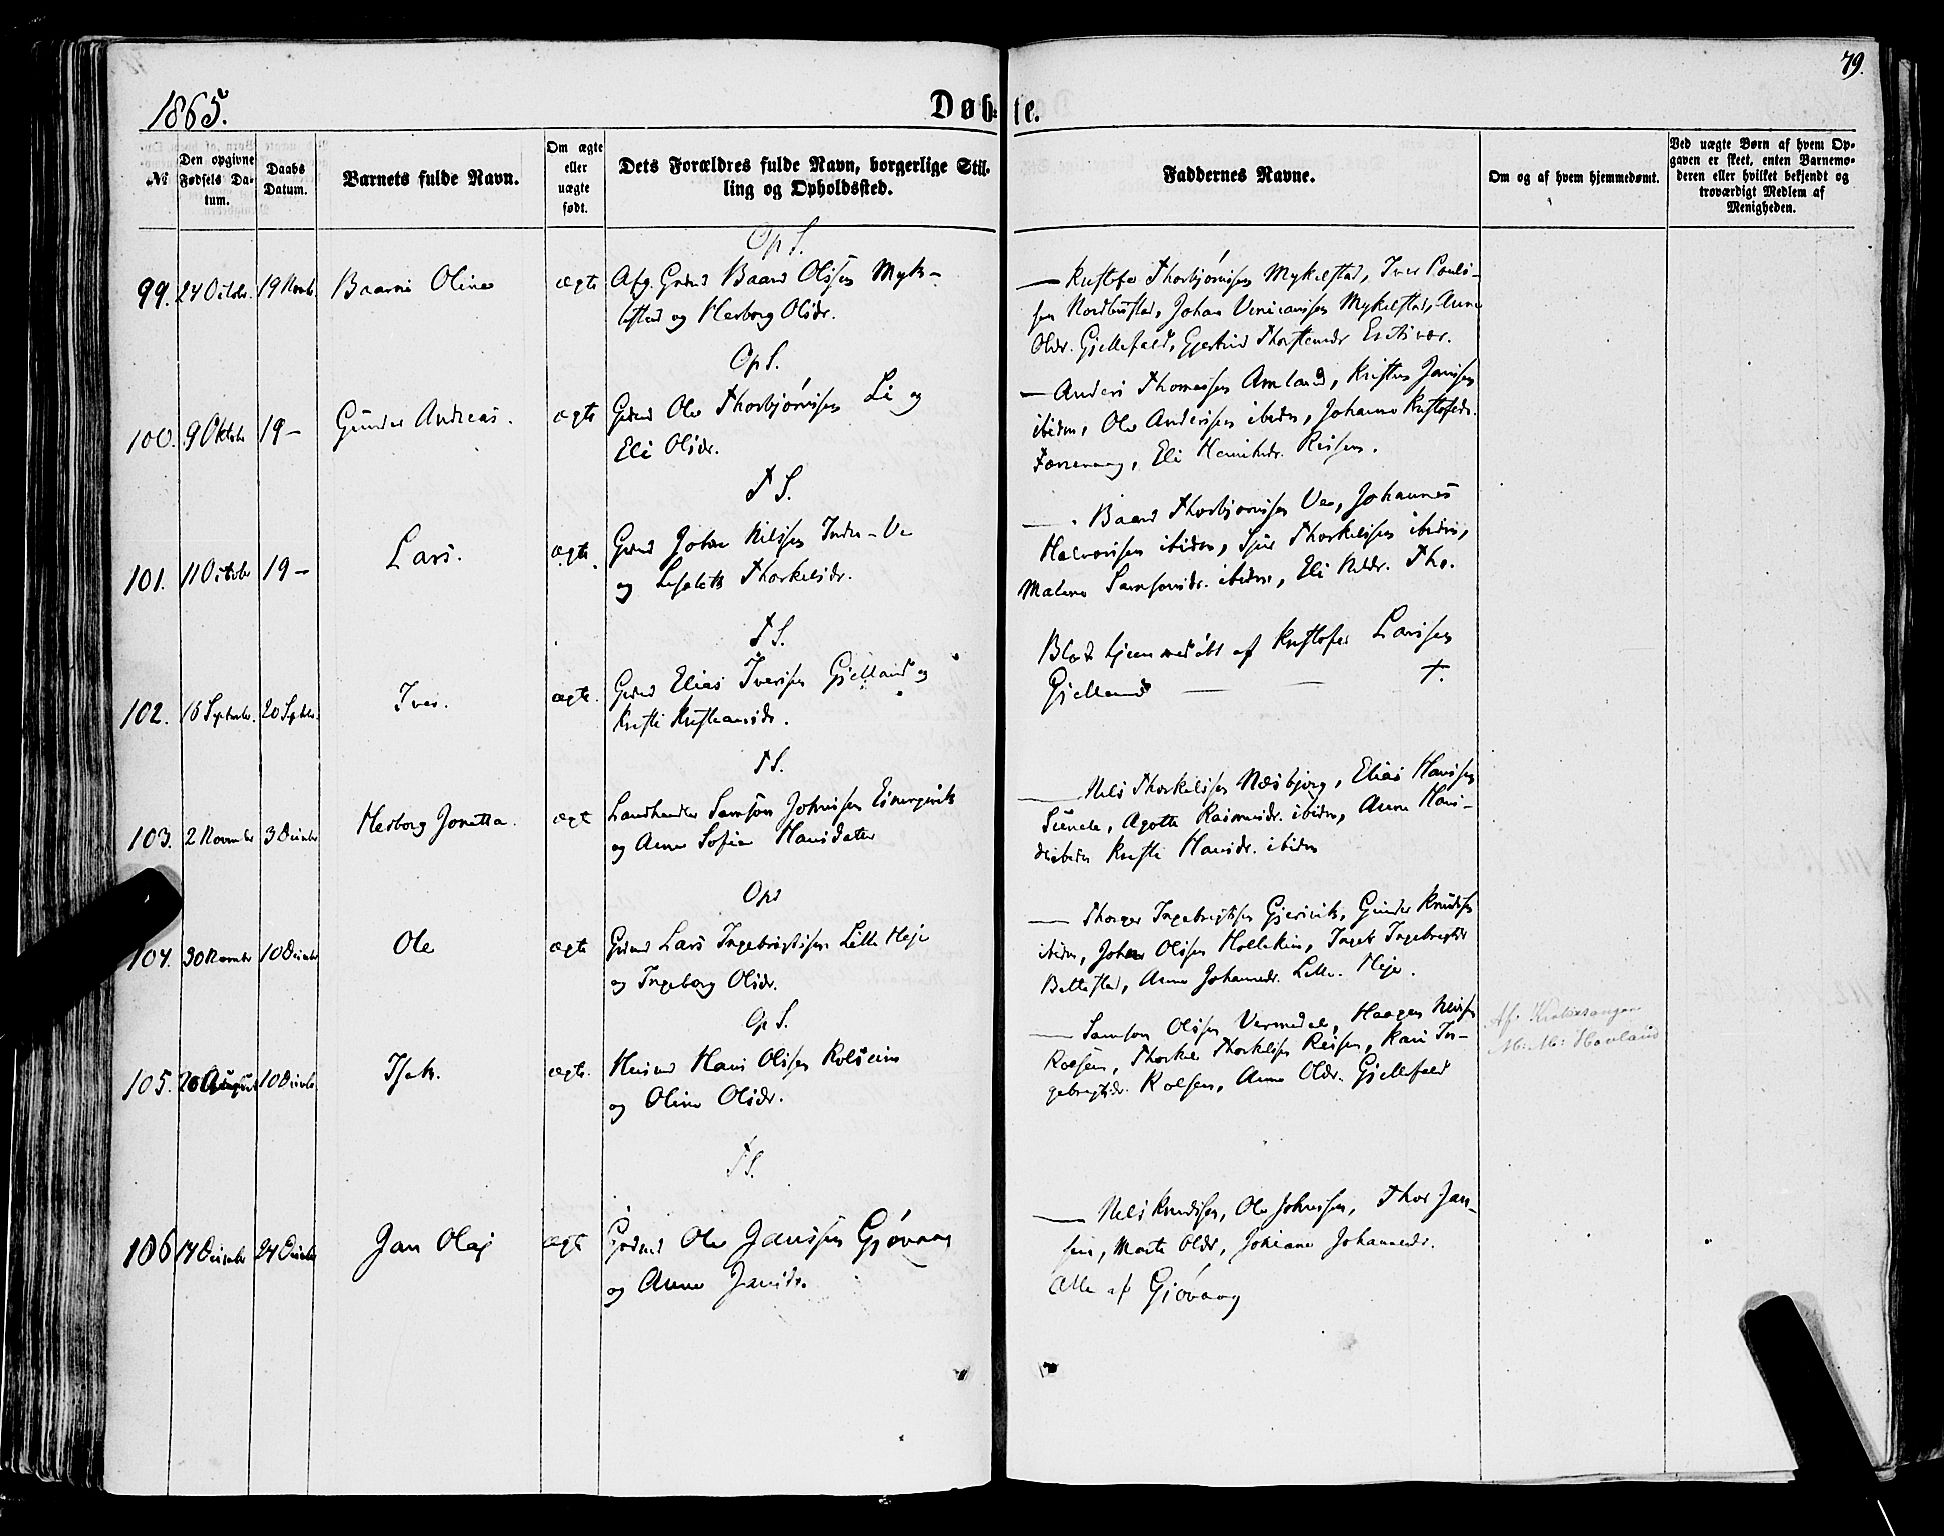 79.
1865.
Døbte.
№
Den opgivne Fødsels Datum.
Daabs Datum.
Barnets fulde Navn.
Om ægte eller uægte født.
Dets Forældres fulde Navn, borgerlige Stilling og Opholdssted.
Faddernes Navne.
Om og af hvem hjemmedømt.
Ved uægte Børn af hvem Opgaven er skeet, enten Barnemoderen eller hvilket bekjendt og troværdigt Medlem af Menigheden.
Op S.
99. 24 Octobr. 19 Novb. Baarni Oline ægte Afg. Grdmd Baard Olssen Myk-
lestad og Herborg Olsdr.
— Kristofer Thorbjørnsen Mykelstad, Iver Pouls-
sen Nordbustad, Johan Mykelstad, Anne
Olsdr. Gjellefald, Gjertrud Thorstensdr
Op S.
100. 9 Oktobr 19 — Gunder Andreas. ægte Grdmd Ole Thorbjørnsen Li og
Eli Olsdr.
— Anders Thomassen Amland, Kristen Janssen
ibidm, Ole Anderssen ibidm, Johanne Kristofsdr.
Eli Henriksdr.
T S.
101. 11 Octobr 19 — Lars. ægte. Grdmd Johan Nilssen Indre-Ve
og Lisabeth Thorkelsdr.
— Baard Thorbjørnsen Vee, Johannes
Halvorsen ibidm, Sjur Thorkelssen ibidm,
Malene Samsonsdr. ibidm, Eli Nilsdr. Tho.
T S.
102. 16 Septembr. 20 Septbr. Iver. ægte. Grdmd Elias Iverssen Gjelland og
Kristi Kristiansdr.
Blot hjemmedøbt af Kristofer Larssen
Gjelland — — †.
T S.
103. 2 November 3 December Herborg Jonetta. ægte Landhandler Samson Johnssen
og Anne Sofie Hansdater
— Nels Thorkelssen Næsbjerg, Elias Hanssen
Sunde, Agotte Rasmusdr. ibidm, Anne Hans-
dr ibidm Kristi Hansdr. ibidm
Ops
104. 30 November 10 December Ole ægte Grdmd Lars Ingebrigtssen Lille Heje
og Ingeborg Olsdr.
— Thorger Ingebrigtsen Gjervik, Gunder Knudssen
ibidm, Johan Olssen Ingebrigtsdr
Anne Johannesdr. Lille. Heje.
Op S.
105. 26 August 10 Decbr. Isak. ægte. Husmd Hans Olssen
og Oline Olsdr.
— Samson Olssen Haagen Nilssen
Thorkel Thorkelssen Kari In-
gebrigtsdr. Anne Olsdr. Gjellefald
Af Kirkesanger
M: M: Hovland
T S.
106 17 December 24 December Jan Olaj ægte Grdmd Ole Janssen Gjøvaag
og Anna Jansdr.
— Nels Knudssen, Ole Johnssen, Thor Jans-
sen, Marte Olsdr, Johanne Johannesdr.
Alle af Gjøvaag